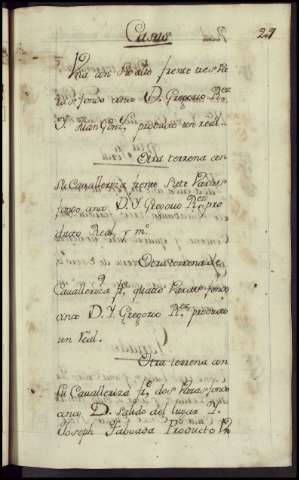 Casas 29
Una con su alto frente tres Va
ras fondo cinco D. Gregorio Rez
Y. Juan Gonz. producto un real
Otra terrena con
su Cavalleriza frente siete Varas
fondo cinco D. Y Gregorio Rez pro
ducto Real y mo
Otra terrena de
Cavalleriza fte quatro Varas fondo
cinco D. Y Gregorio Rez producto
un real.
Otra terrena con
su Cavalleriza fte dos Varas fondo
cinco D. salido del lugar Y.
Joseph Taboada Producto